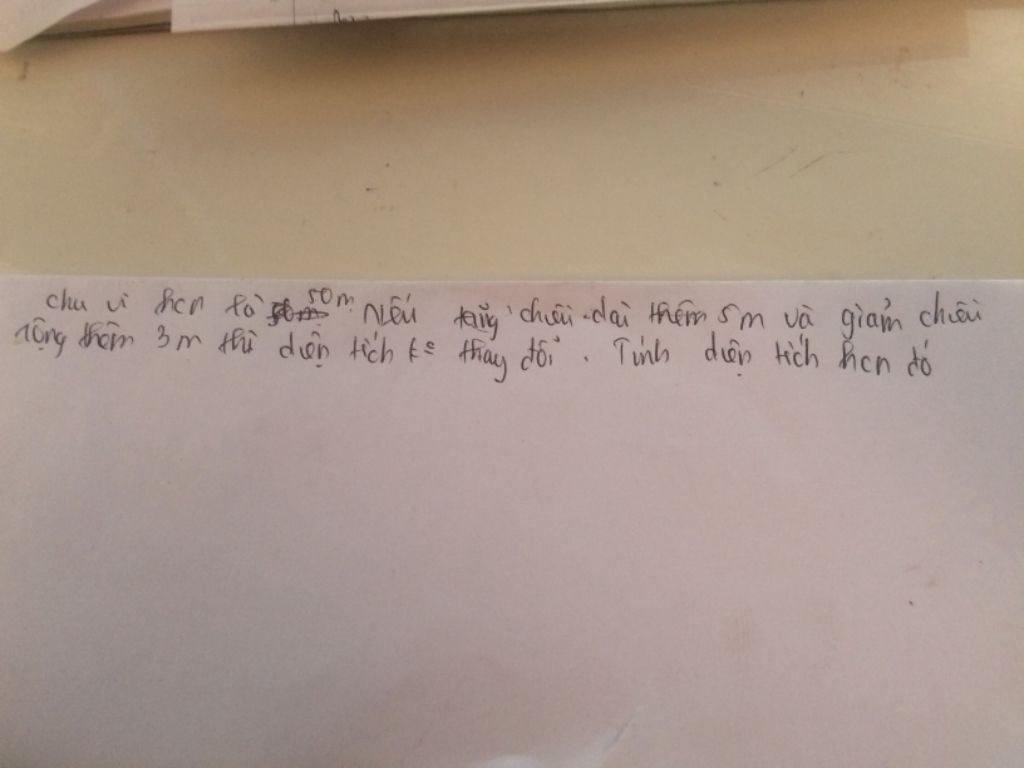 chu vi hcn là 50m. Nếu tăng chiều dài thêm 5m và giảm chiều
rộng thêm 3m thì diện tích ko thay đổi. Tính diện tích hcn đó